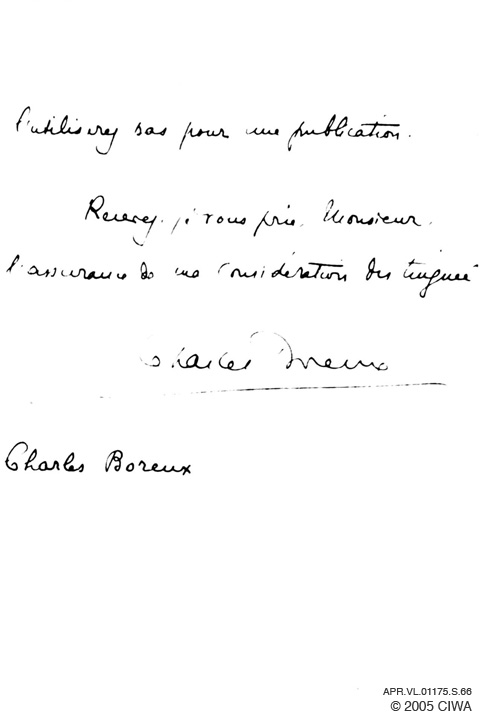 l'utiliserez pas pour une publication.
Recevez, je vous prie, Monsieur,
l'assurance de ma considération distinguée
Charles Boreux
Charles Boreux
APR.VL.01175.S.66
© 2005 CIWA